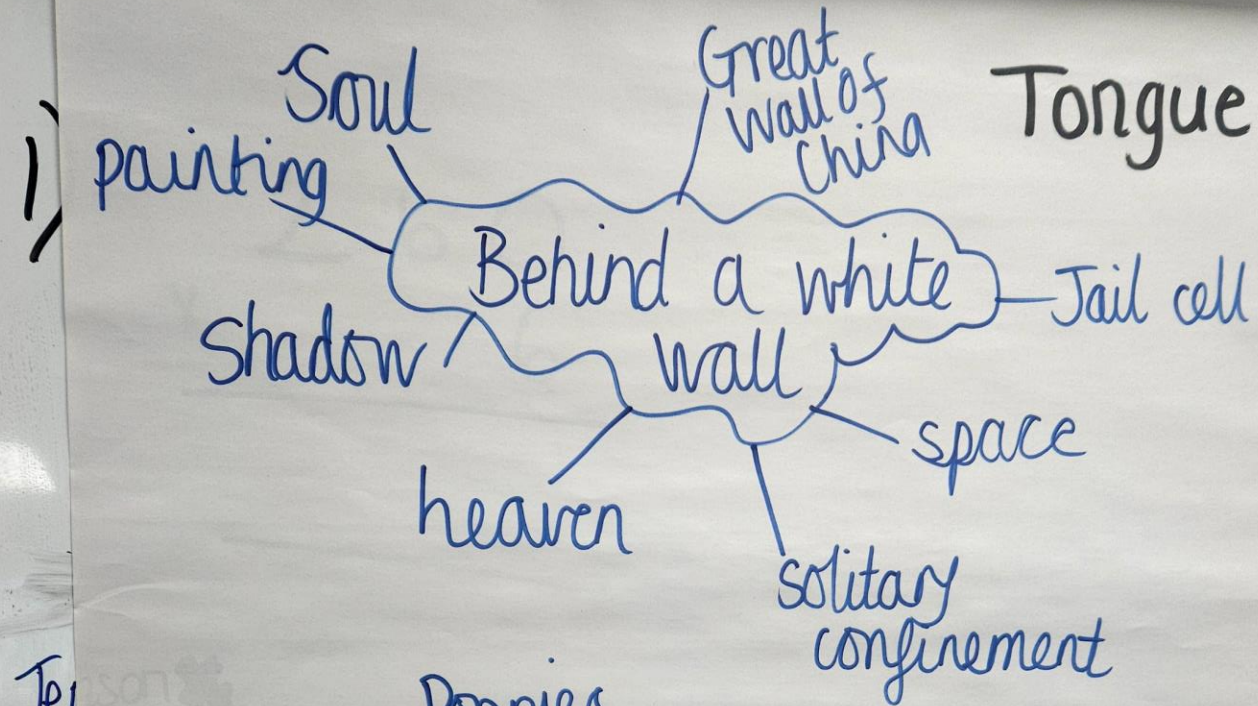 Soul
Great
wall of
China
Tongue
1)
painting
Behind a white
wall
Jail cell
Shadow
space
heaven
solitary
confinement